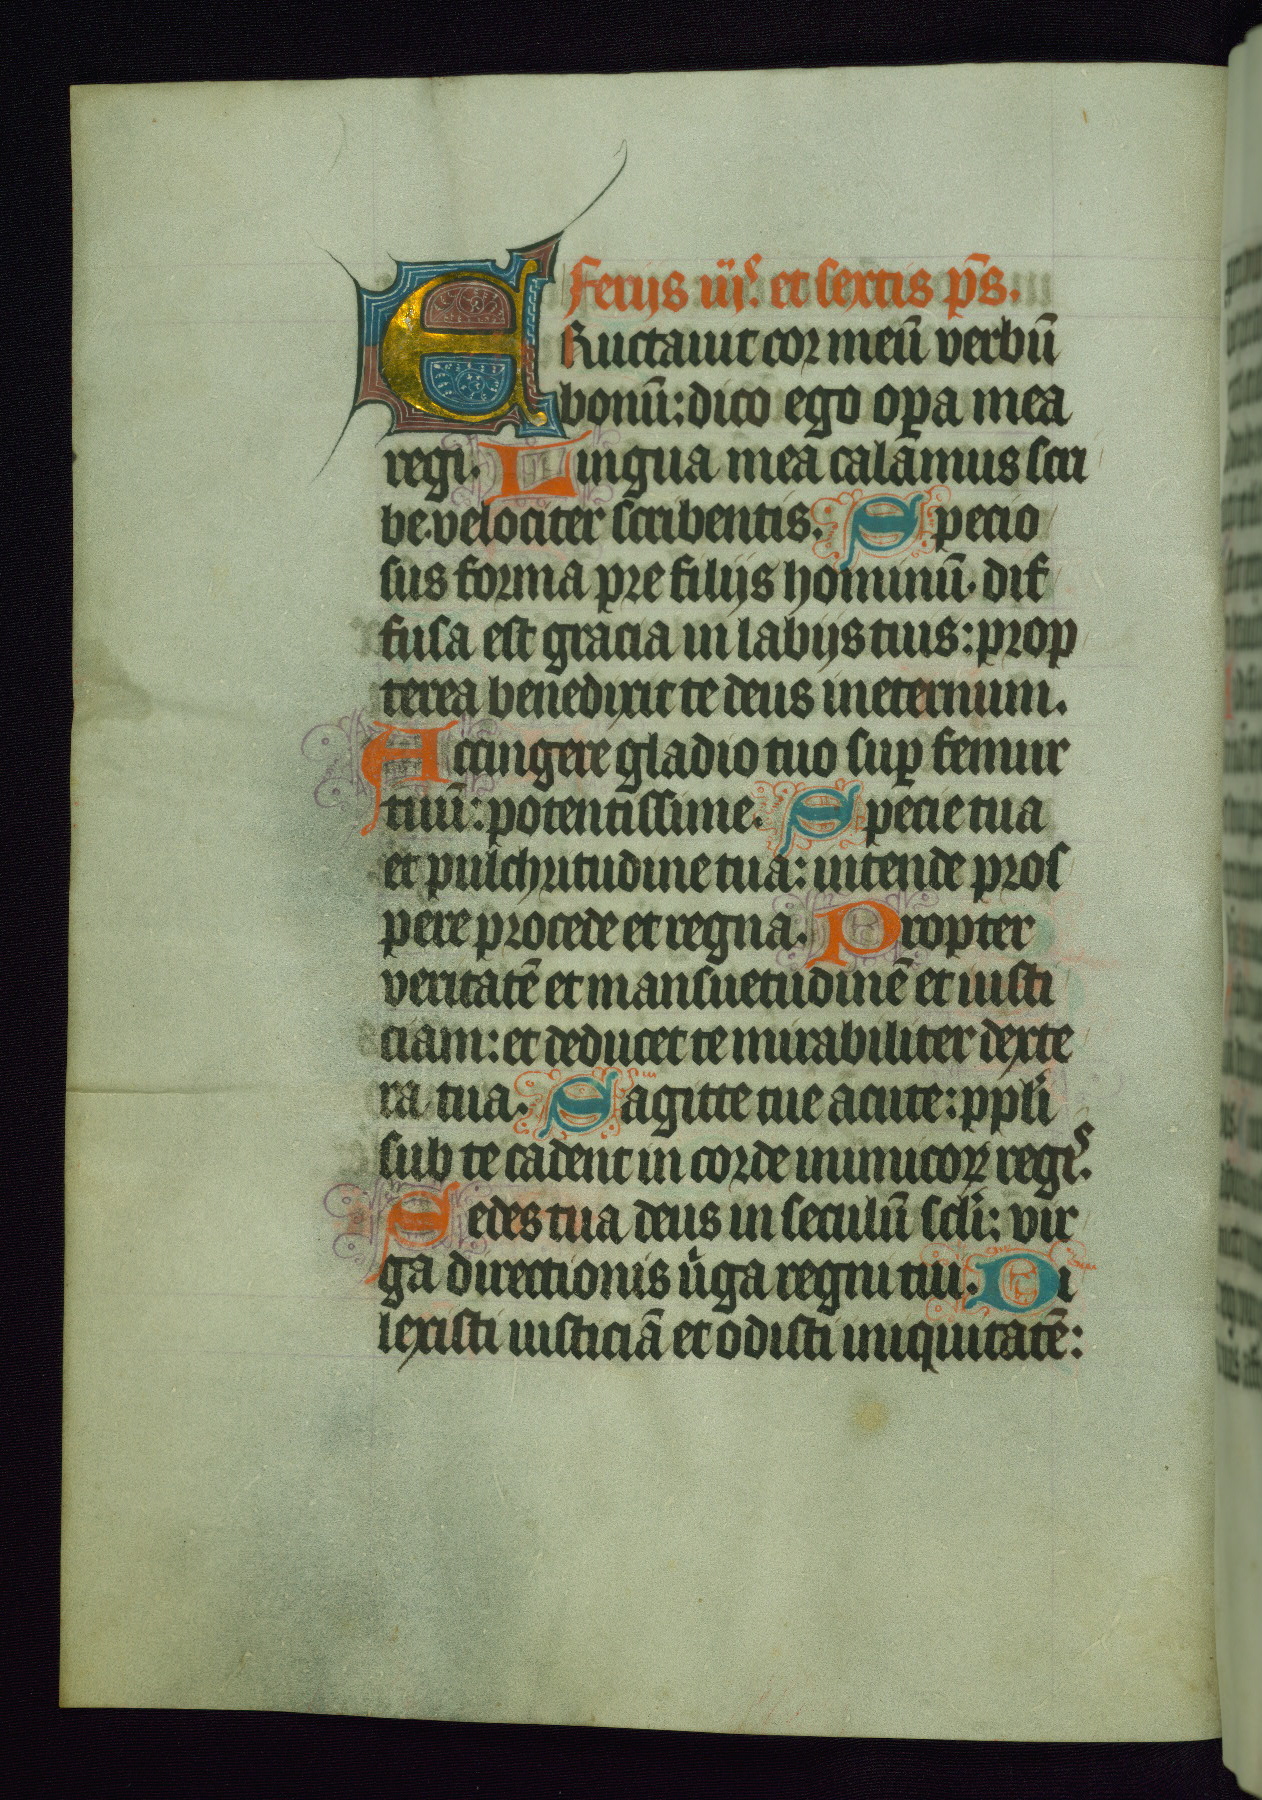 Ferijs iijs. et sextis p̄s.
ERuctauit cor meū verbū
bonū: dico ego oꝑa mea
regi. Lingua mea calamus scri
be. velociter scribentis. Specio
sus forma pre filijs hominū. dif
fusa est gracia in labijs tuis: prop
terea benedixit te deus in eternum.
Accingere gladio tuo suꝑ femur
tuū: potentissime. Specie tua
et pulchritudine tua: intende pros
pere procede et regna. Propter
veritatē et mansuetudinē et iusti
ciam: et deducet te mirabiliter dexte
ra tua. Sagitte tue acute: ppl'i
sub te cadent in corde inimicoꝝ regis.
Sedes tua deus in seculū scl'i: vir
ga directionis v̓ga regni tui. Di
lexisti iusticiā et odisti iniquitatē: